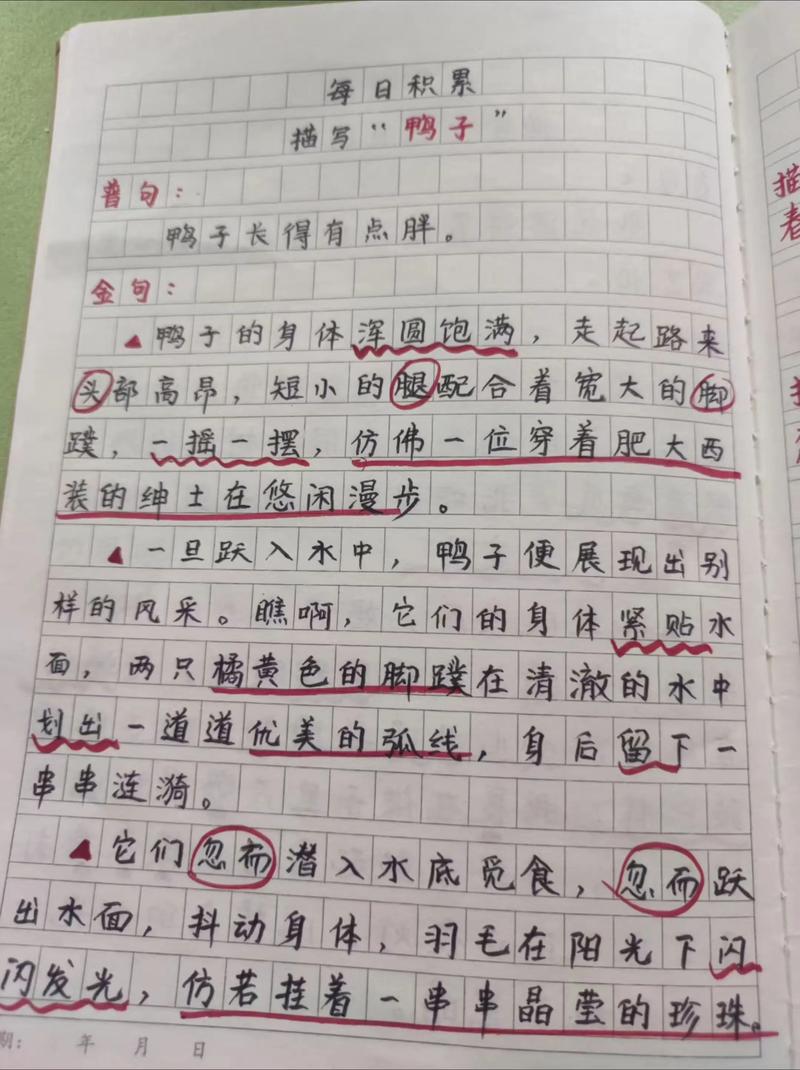 每日积累
描写“鸭子”
普句：
鸭子长得有点胖。
金句：
▲鸭子的身体浑圆饱满，走起路来
头部高昂，短小的腿配合着宽大的脚
蹼，一摇一摆，仿佛一位穿着肥大西
装的绅士在悠闲漫步。
▲一旦跃入水中，鸭子便展现出别
样的风采。瞧啊，它们的身体紧贴水
面，两只橘黄色的脚蹼在清澈的水中
划出一道道优美的弧线，身后留下一
串串涟漪。
▲它们忽而潜入水底觅食，忽而跃
出水面，抖动身体，羽毛在阳光下闪
闪发光，仿若挂着一串串晶莹的珍珠。
期： 年 月 日
描
春